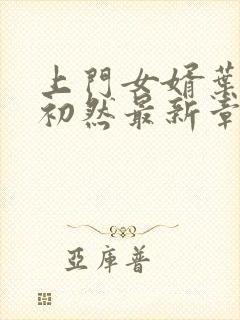 上門女婿葉
初然最新章
亞庫普